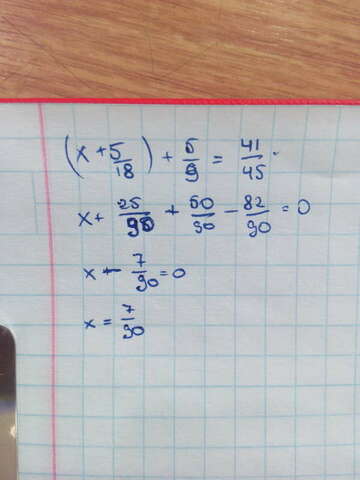 (x + 5/18) + 5/9 = 41/45
x + 25/90 + 50/90 - 82/90 = 0
x - 7/90 = 0
x = 7/90